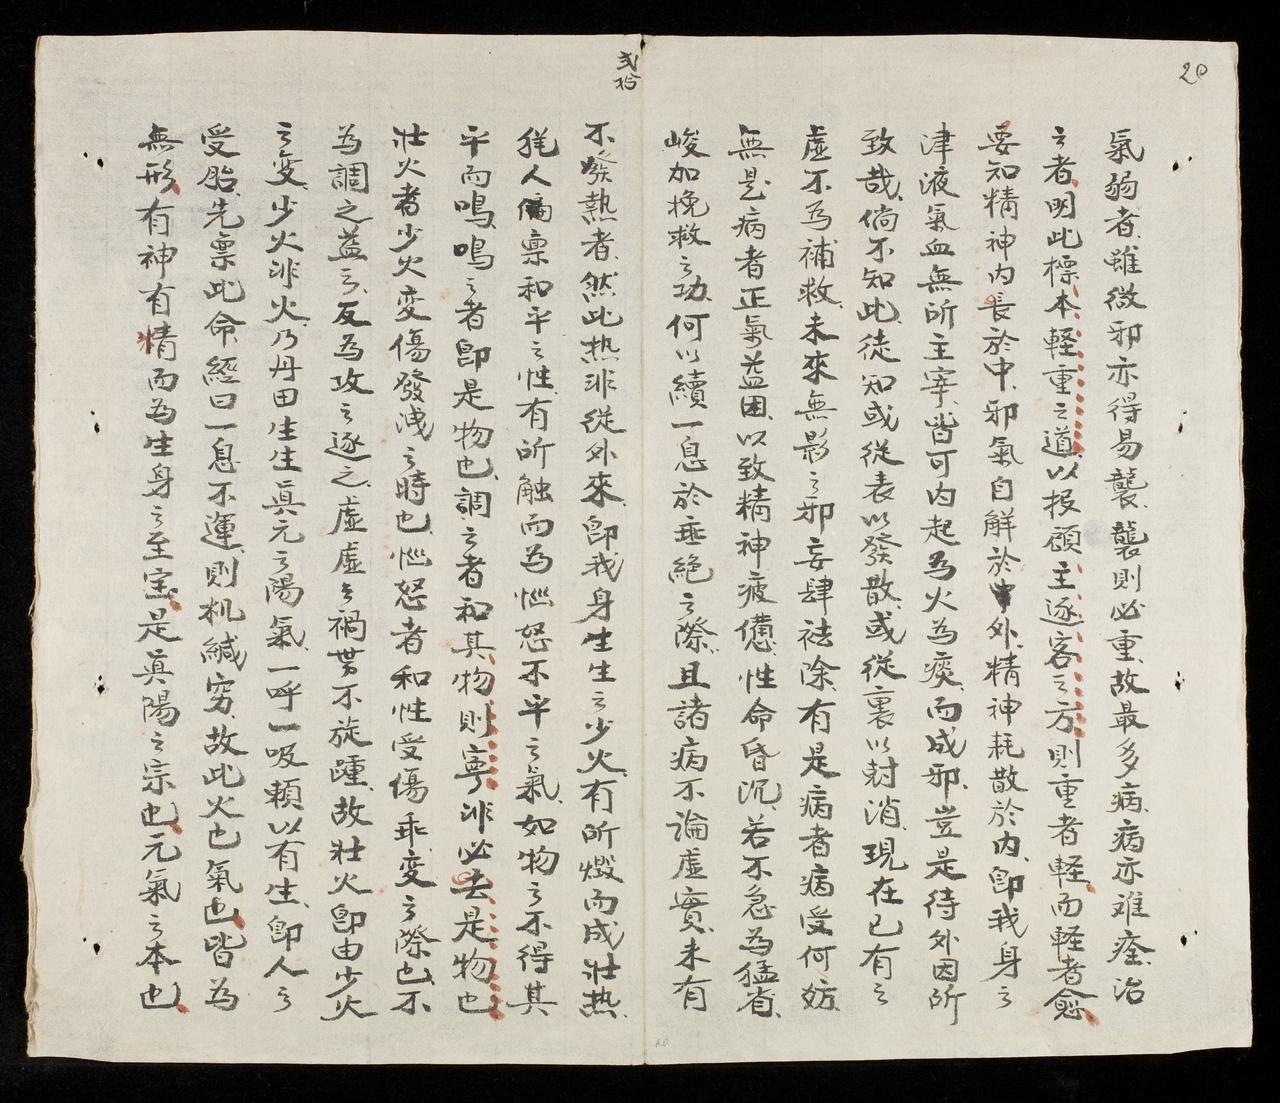 20
弍拾
氣弱者、雖微邪亦得易襲、襲則必重、故最多病、病亦难痊、治
之者、明此標本軽重之道、以扳顧主逐客之方、則重者軽、而軽者愈
要知精神内長於中、邪氣自觧於外、精神耗散於内、卽我身之
津液氣血無所主宰、皆可内起為火為痰、而成邪、豈是待外因所
致哉、倘不知此、徒知或従表以發散、或従裏以尅消、現在已有之
虛不為補救、未來無影之邪妄肆祛除、有是病者病受何妨、
無是病者正氣益困、以致精神疲憊、性命昏沉、若不急為猛省、
峻加挽救之功、何以續一息於垂絶之際、且諸病不論虛實、未有
不發熱者、然此热非従外來、卽我身生生之少火、有所燬而成壮热、
㹠人偏禀和平之性、有所触而為惱怒不平之氣、如物之不得其
平而鳴、鳴之者卽是物也、調之者和其物則寜、非必去是物也
壮火者少火变傷發洩之時也、惱怒者和性受傷乖变之際也、不
為調之益之、反為攻之逐之、虛虛之禍努不旋踵、故壮火卽由少火
之变、少火非火、乃丹田生生眞元之陽氣、一呼一吸頼以有生、卽人之
受胎、先禀此命、經曰一息不運、則机緘窮、故此火也氣也、皆為
無形、有神有精而為生身之至宝、是眞陽之宗也、元氣之本也、
20